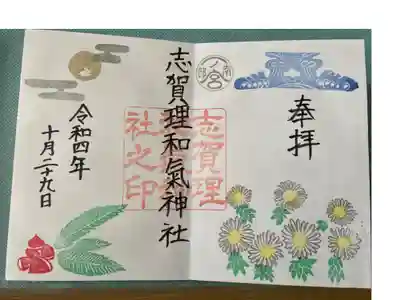 奉拝
志賀理
社之印
志賀理和氣神社
令和四年
十月二十九日